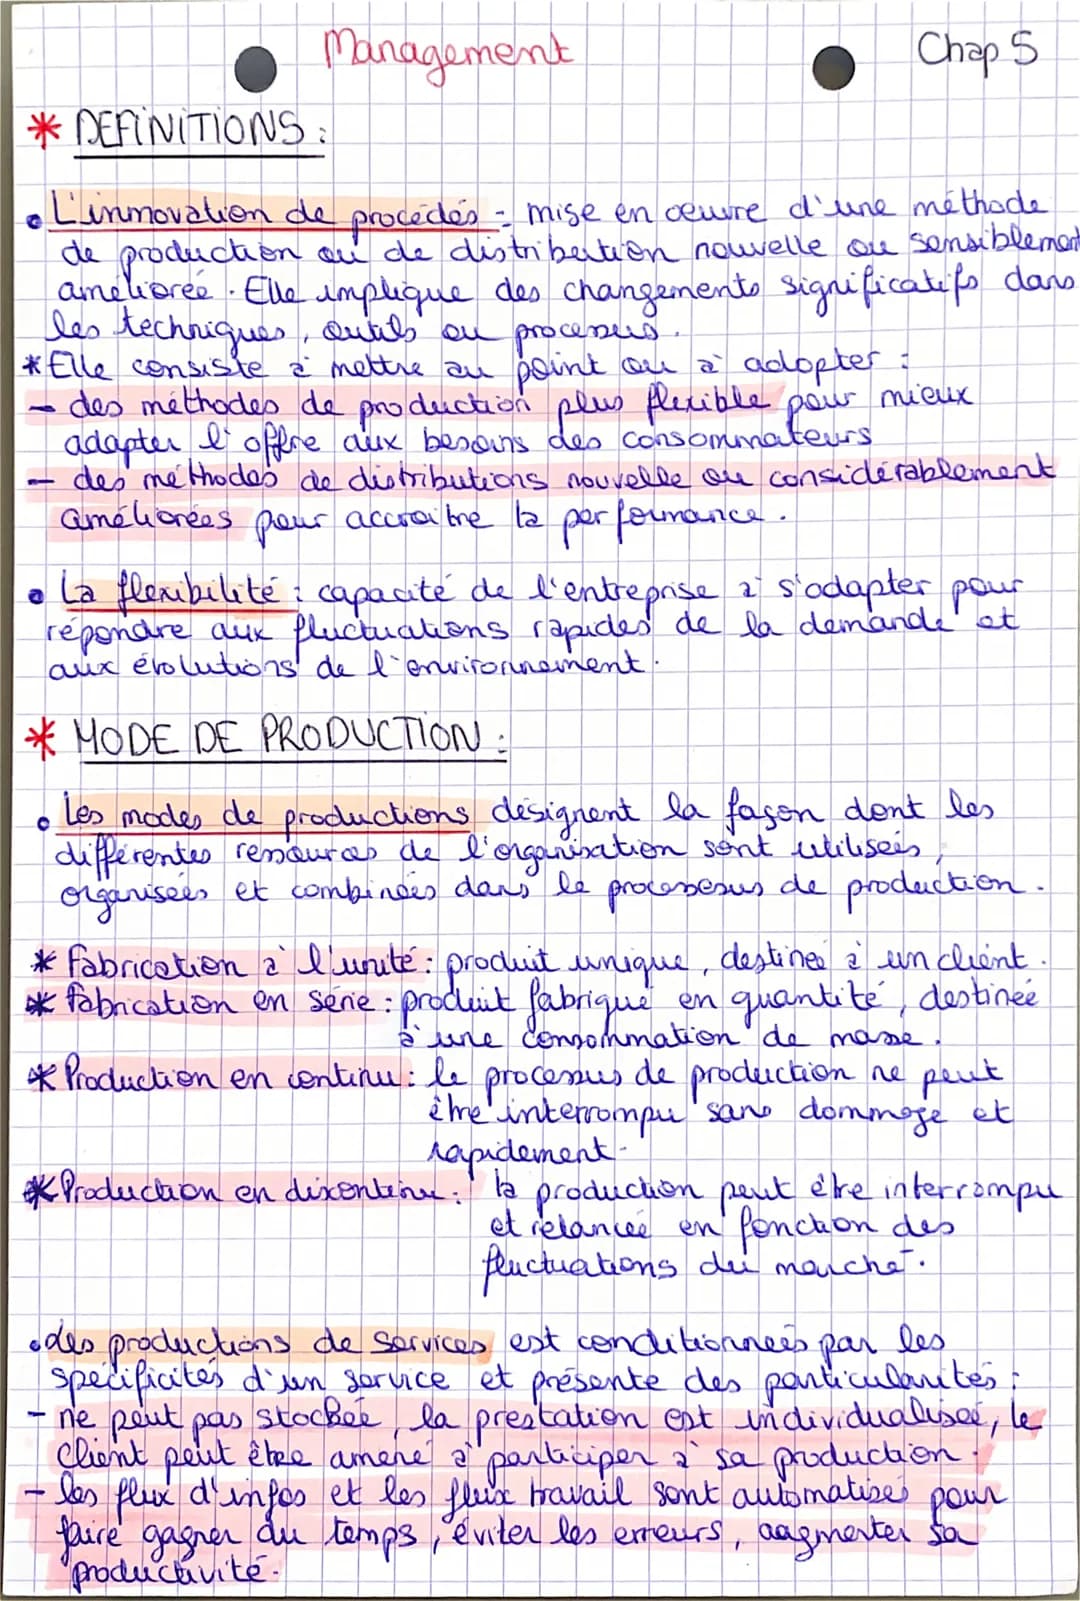 Management
Chap 5
* DEFINITIONS :
• L'innovation de procédés : mise en oeuvre d'une méthode
de production ou de distribution nouvelle ou sensiblement
améliorée. Elle implique des changements significatifs dans
les techniques, outils ou processus.
* Elle consiste à mettre au point ou à adopter :
- des méthodes de production plus flexible pour mieux
adapter l'offre aux besoins des consommateurs
- des méthodes de distributions nouvelle ou considérablement
améliorées pour accroitre la performance.
• La flexibilité : capacité de l'entreprise à s'adapter pour
répondre aux fluctuations rapides de la demande et
aux évolutions de l'environnement.
* MODE DE PRODUCTION :
• Les modes de productions désignent la façon dont les
différentes ressources de l'organisation sont utilisées,
organisées et combinées dans le processus de production.
* Fabrication à l'unité : produit unique, destinée à un client.
* Fabrication en série : produit fabriqué en quantité, destinée
à une consommation de masse.
* Production en continu : le processus de production ne peut
être interrompu sans dommage et
rapidement.
* Production en discontinu : la production peut être interrompu
et relancée en fonction des
fluctuations du marché.
• des productions de services est conditionnées par les
spécificités d'un service et présente des particularités :
- ne peut pas stockée, la prestation est individualisée, le
client peut être amené à participer à sa production.
- les flux d'infos et les flux travail sont automatisés pour
faire gagner du temps, éviter les erreurs, augmenter sa
productivité.